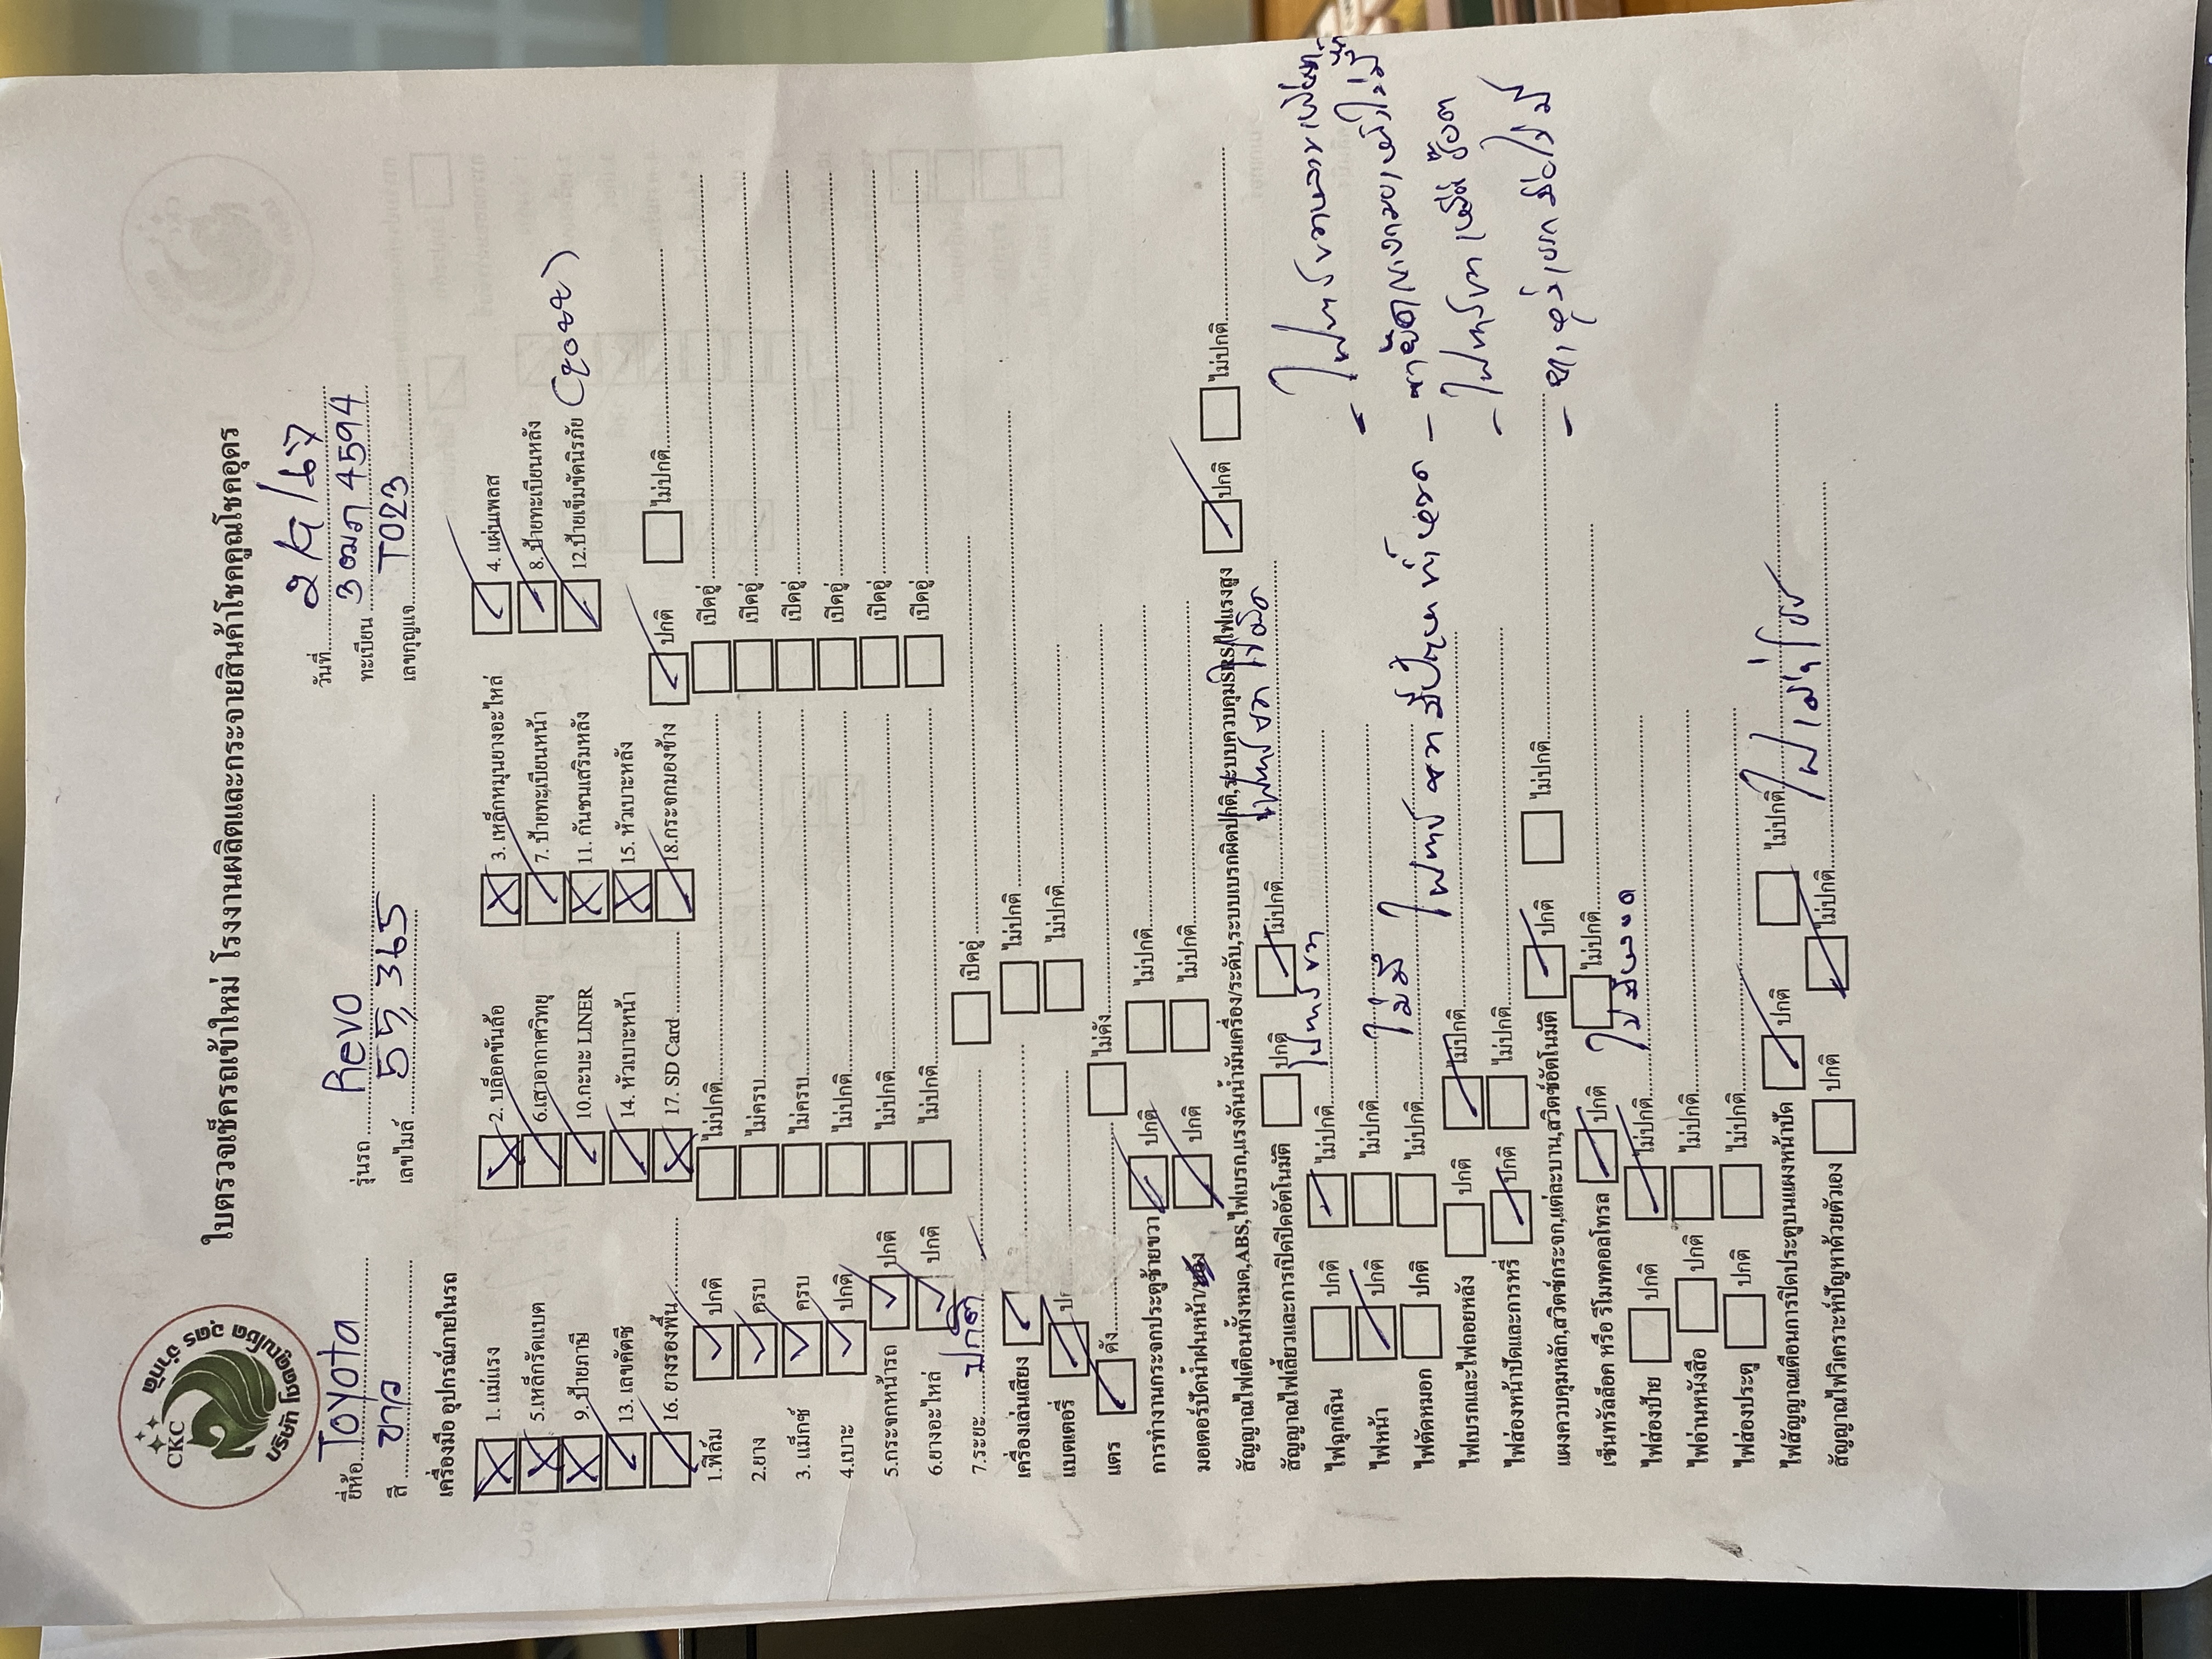 บริษัท โชคคูณโชค อุดร จำกัด
CKC
ใบตรวจเช็ครถเข้าใหม่ โรงงานผลิตและกระจายสินค้าโชคคูณโชคอุดร
วันที่
ยี่ห้อ Toyota รุ่นรถ Revo ทะเบียน 3ฒภ 4594
สี ขาว เลขไมล์ 55,365 เลขกุญแจ T023
เครื่องมือ อุปกรณ์ภายในรถ
1. แม่แรง 2. บล็อคขันล้อ 3. เหล็กหมุนยางอะไหล่ 4. แผ่นเพลส
5.เหล็กรัดแบต 6.เสาอากาศวิทยุ 7. ป้ายทะเบียนหน้า 8. ป้ายทะเบียนหลัง
9. ป้ายภาษี 10.กะบะ LINER 11. กันชนเสริมหลัง 12.ป้ายเข็มขัดนิรภัย
13. เลขคัตซี 14. หัวเบาะหน้า 15. หัวเบาะหลัง
16. ยางรองพื้น 17. SD Card 18.กระจกมองข้าง ปกติ ไม่ปกติ
1.ฟิล์ม ปกติ ไม่ปกติ เปิดอู่
2.ยาง ครบ ไม่ครบ เปิดอู่
3. แม็กซ์ ครบ ไม่ครบ เปิดอู่
4.เบาะ ปกติ ไม่ปกติ เปิดอู่
5.กระจกหน้ารถ ปกติ ไม่ปกติ เปิดอู่
6.ยางอะไหล่ ปกติ ไม่ปกติ เปิดอู่
7.ระยะ ปกติ เปิดอู่
เครื่องเล่นเสียง ไม่ปกติ
แบตเตอรี่ ไม่ปกติ
แตร ดัง ไม่ดัง
การทำงานกระจกประตูซ้ายขวา ปกติ ไม่ปกติ
มอเตอร์ปัดน้ำฝนหน้า/หลัง ปกติ ไม่ปกติ
สัญญาณไฟเตือนทั้งหมด,ABS,ไฟเบรก,แรงดันน้ำมันเครื่อง/ระดับ,ระบบเบรกผิดปกติ,ระบบควบคุมSRS/ไฟแรงสูง ปกติ ไม่ปกติ
สัญญาณไฟเลี้ยวและการเปิดปิดอัตโนมัติ ปกติ ไม่ปกติ
ไฟฉุกเฉิน ปกติ ไม่ปกติ
ไฟหน้า ปกติ ไม่ปกติ
ไฟตัดหมอก ปกติ ไม่ปกติ ไม่มี
ไฟเบรกและไฟถอยหลัง ปกติ ไม่ปกติ
ไฟส่องหน้าปัดและการหรี่ ปกติ ไม่ปกติ
แผงควบคุมหลัก,สวิตช์กระจก,แต่ละบาน,สวิตช์อัตโนมัติ ปกติ ไม่ปกติ
เซ็นทรัลล็อค หรือ รีโมทคอลโทรล ปกติ ไม่ปกติ
ไฟส่องป้าย ปกติ ไม่ปกติ
ไฟอ่านหนังสือ ปกติ ไม่ปกติ
ไฟส่องประตู ปกติ ไม่ปกติ
ไฟสัญญาณเตือนการปิดประตูบนแผงหน้าปัด ปกติ ไม่ปกติ
สัญญาณไฟวิเคราะห์ปัญหาด้วยตัวเอง ปกติ ไม่ปกติ